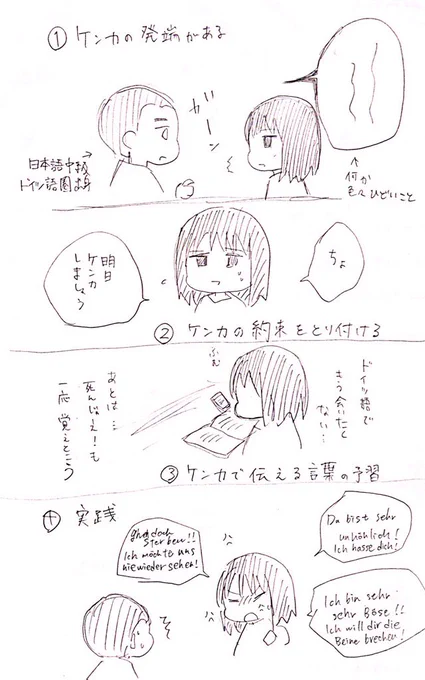 ① ケンカの発端がある
ガーン
日本語中級
ドイツ語圏出身
↑
何か
色々ひどいこと
ちょ
明日
ケンカ
しましょう
② ケンカの約束をとり付ける
ドイツ語で
もう会いたく
ない…
ふむ
あとは…
死んじゃえ!も
一応覚えとこう
③ ケンカで伝える言葉の予習
④ 実践
Du bist sehr
unhöhlich!
Ich hasse dich!
geh doch
sterben!!
Ich möchte uns
nie wieder sehen!
Ich bin sehr
sehr Böse!!
Ich will dir die
Beine brechen!